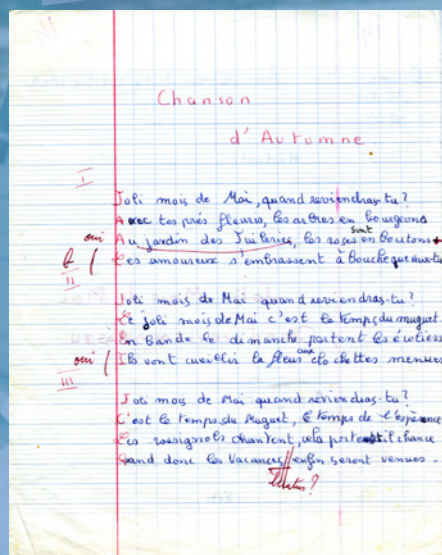 Chanson
d'Automne
I
Joli mois de Mai, quand reviendras-tu ?
Avec tes prés fleuris, les arbres en bourgeons
oui Au jardin des Tuileries, les roses sont en boutons
Les amoureux s'embrassent à bouche que veux-tu
II
Joli mois de Mai quand reviendras-tu ?
Le joli mois de Mai c'est le temps du muguet.
En bande le dimanche partent les écoliers
oui Ils vont cueillir la fleur aux clochettes menues
III
Joli mois de Mai quand reviendras-tu ?
C'est le temps du Muguet, le temps de l'espérance
Les rossignols chantent, cela porte-t-il chance
Quand donc les Vacances enfin seront venues.